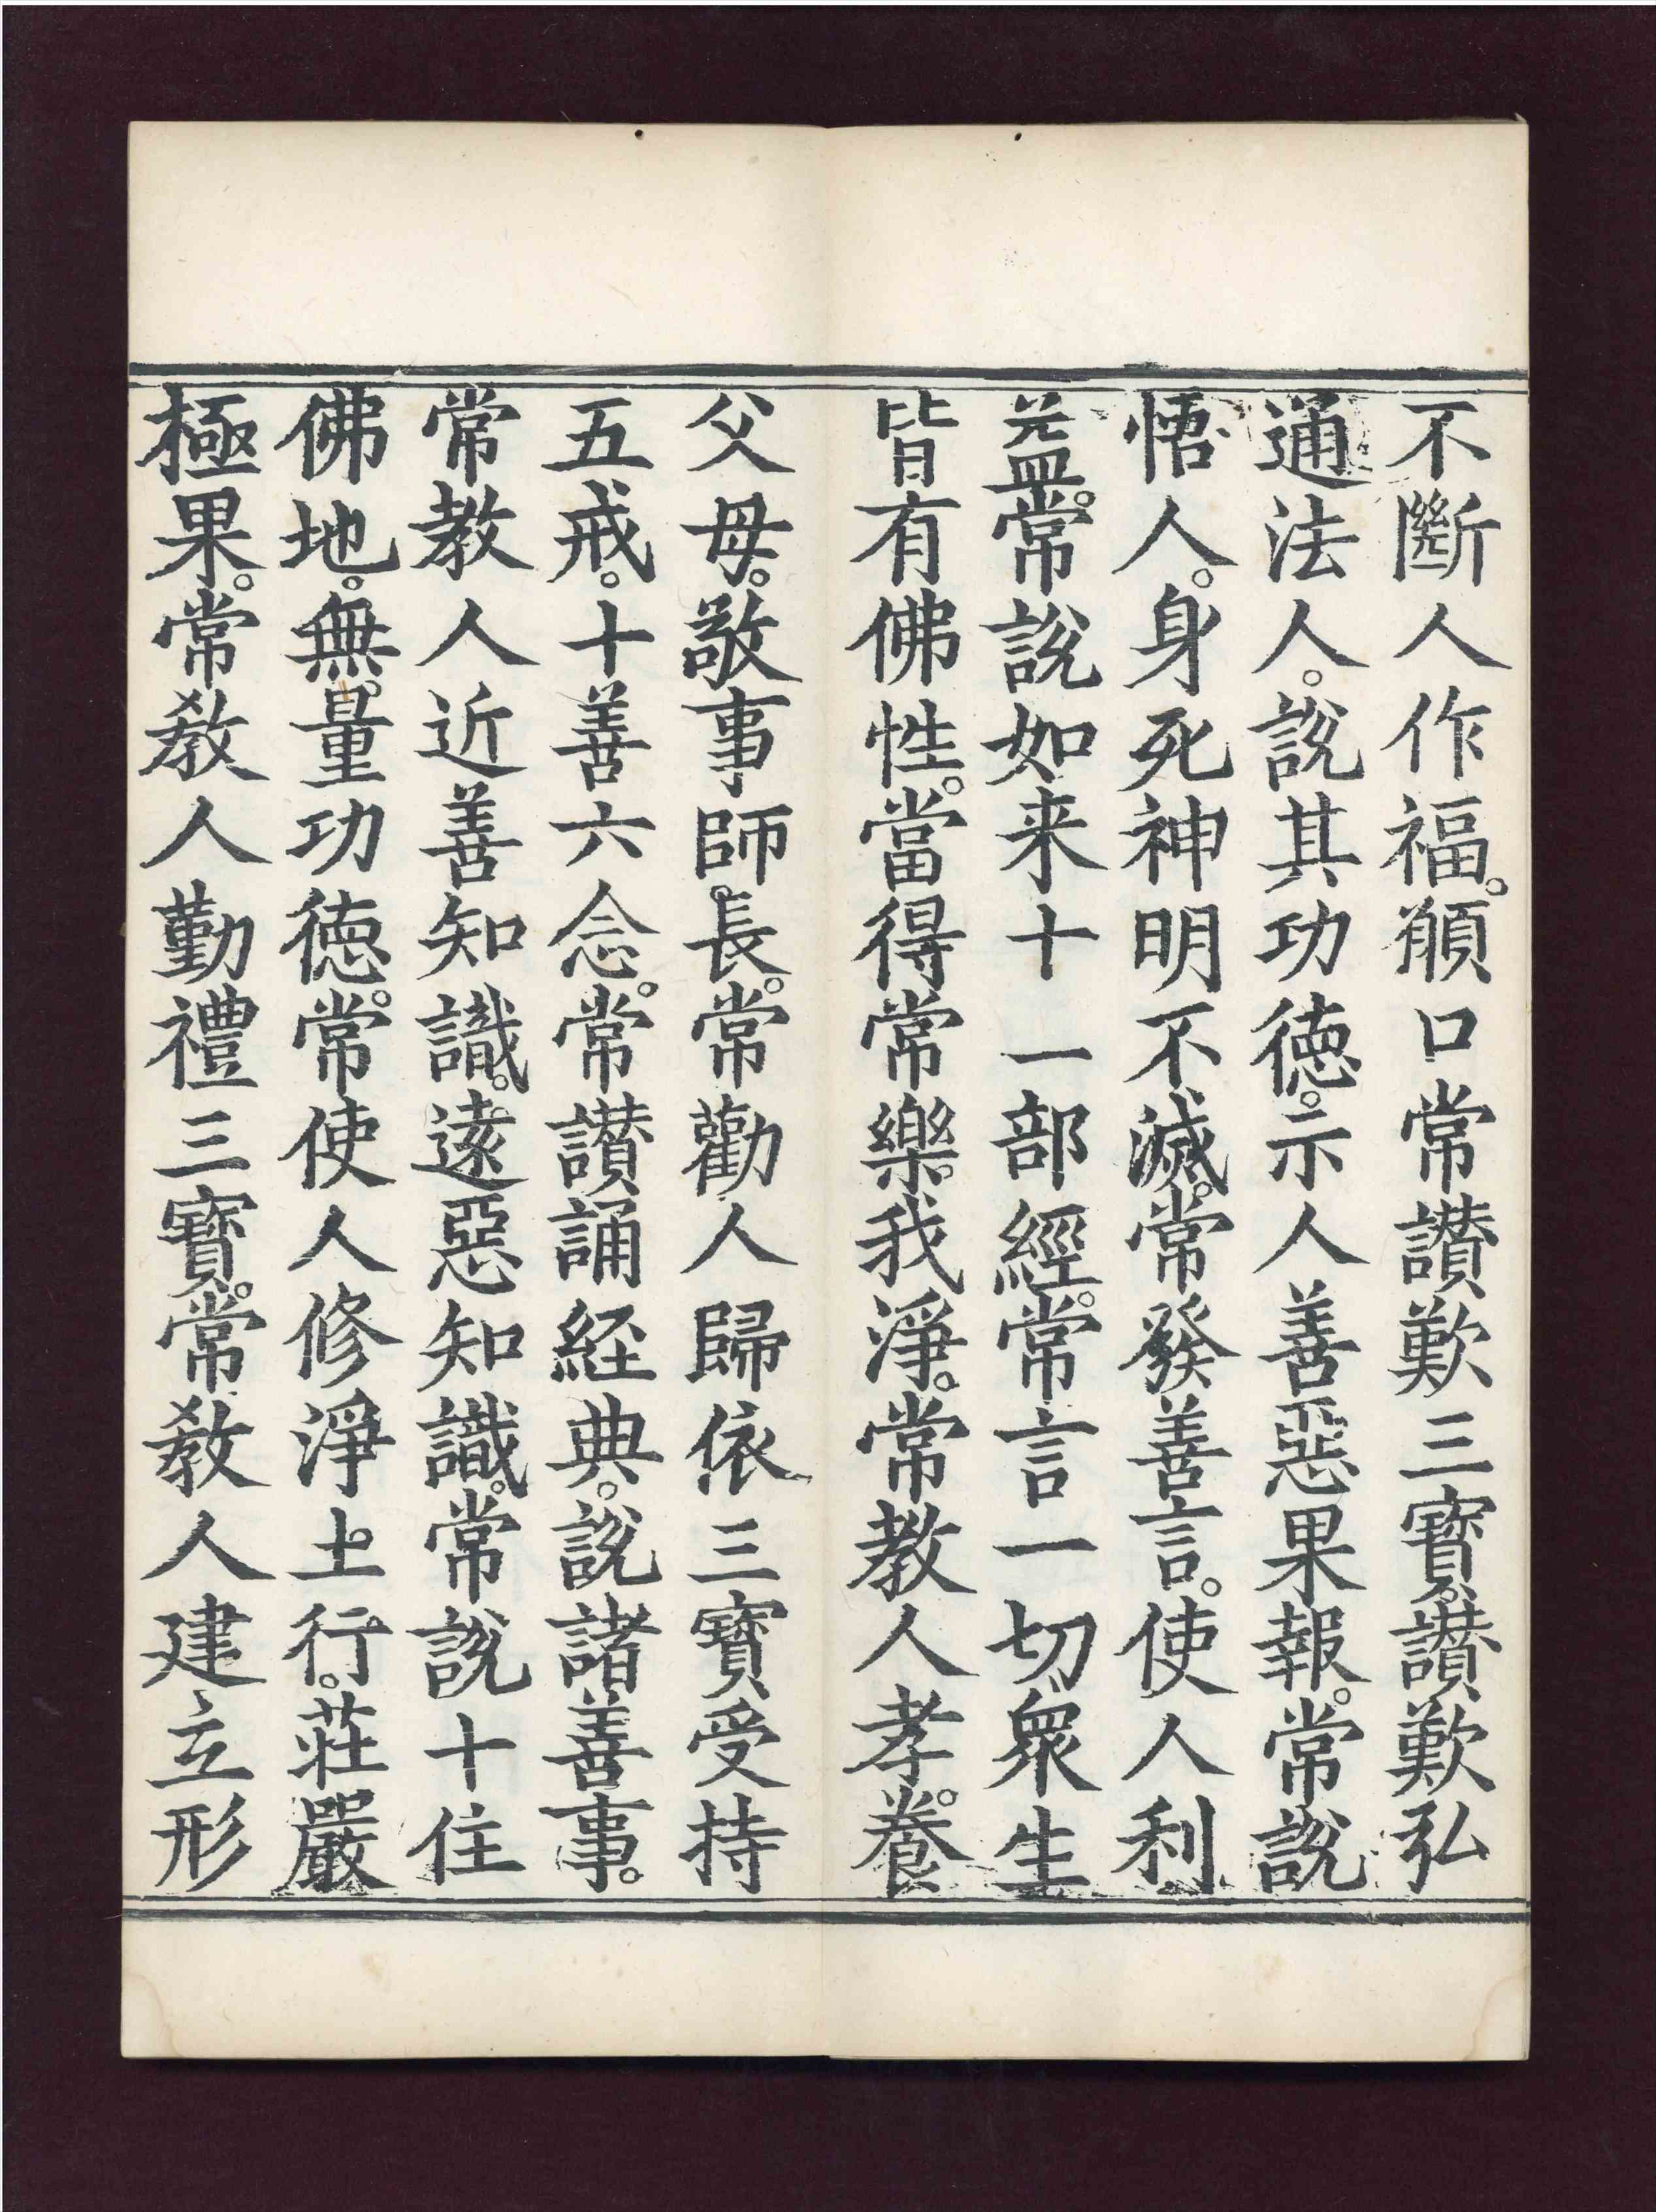 不斷人作福。願口常讃歎三寶。讃歎弘
通法人。說其功徳。示人善惡果報。常說
悟人。身死神明不滅。常發善言。使人利
益。常說如来十一部經。常言一切衆生
皆有佛性。當得常樂。我淨。常教人孝。養
父母。敬事師。長。常勸人歸依三寶受持
五戒。十善六念。常讃誦経典。說諸善事。
常教人近善知識。遠惡知識。常說十住
佛地。無。量功徳。常使人修淨土。行。莊嚴
極果。常教人勤禮三寶。常教人建立形